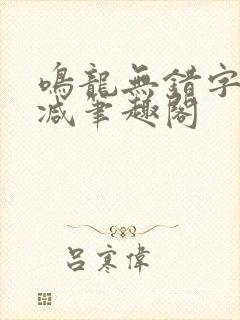 鳴龍無錯字
减筆趣閣
呂寒偉